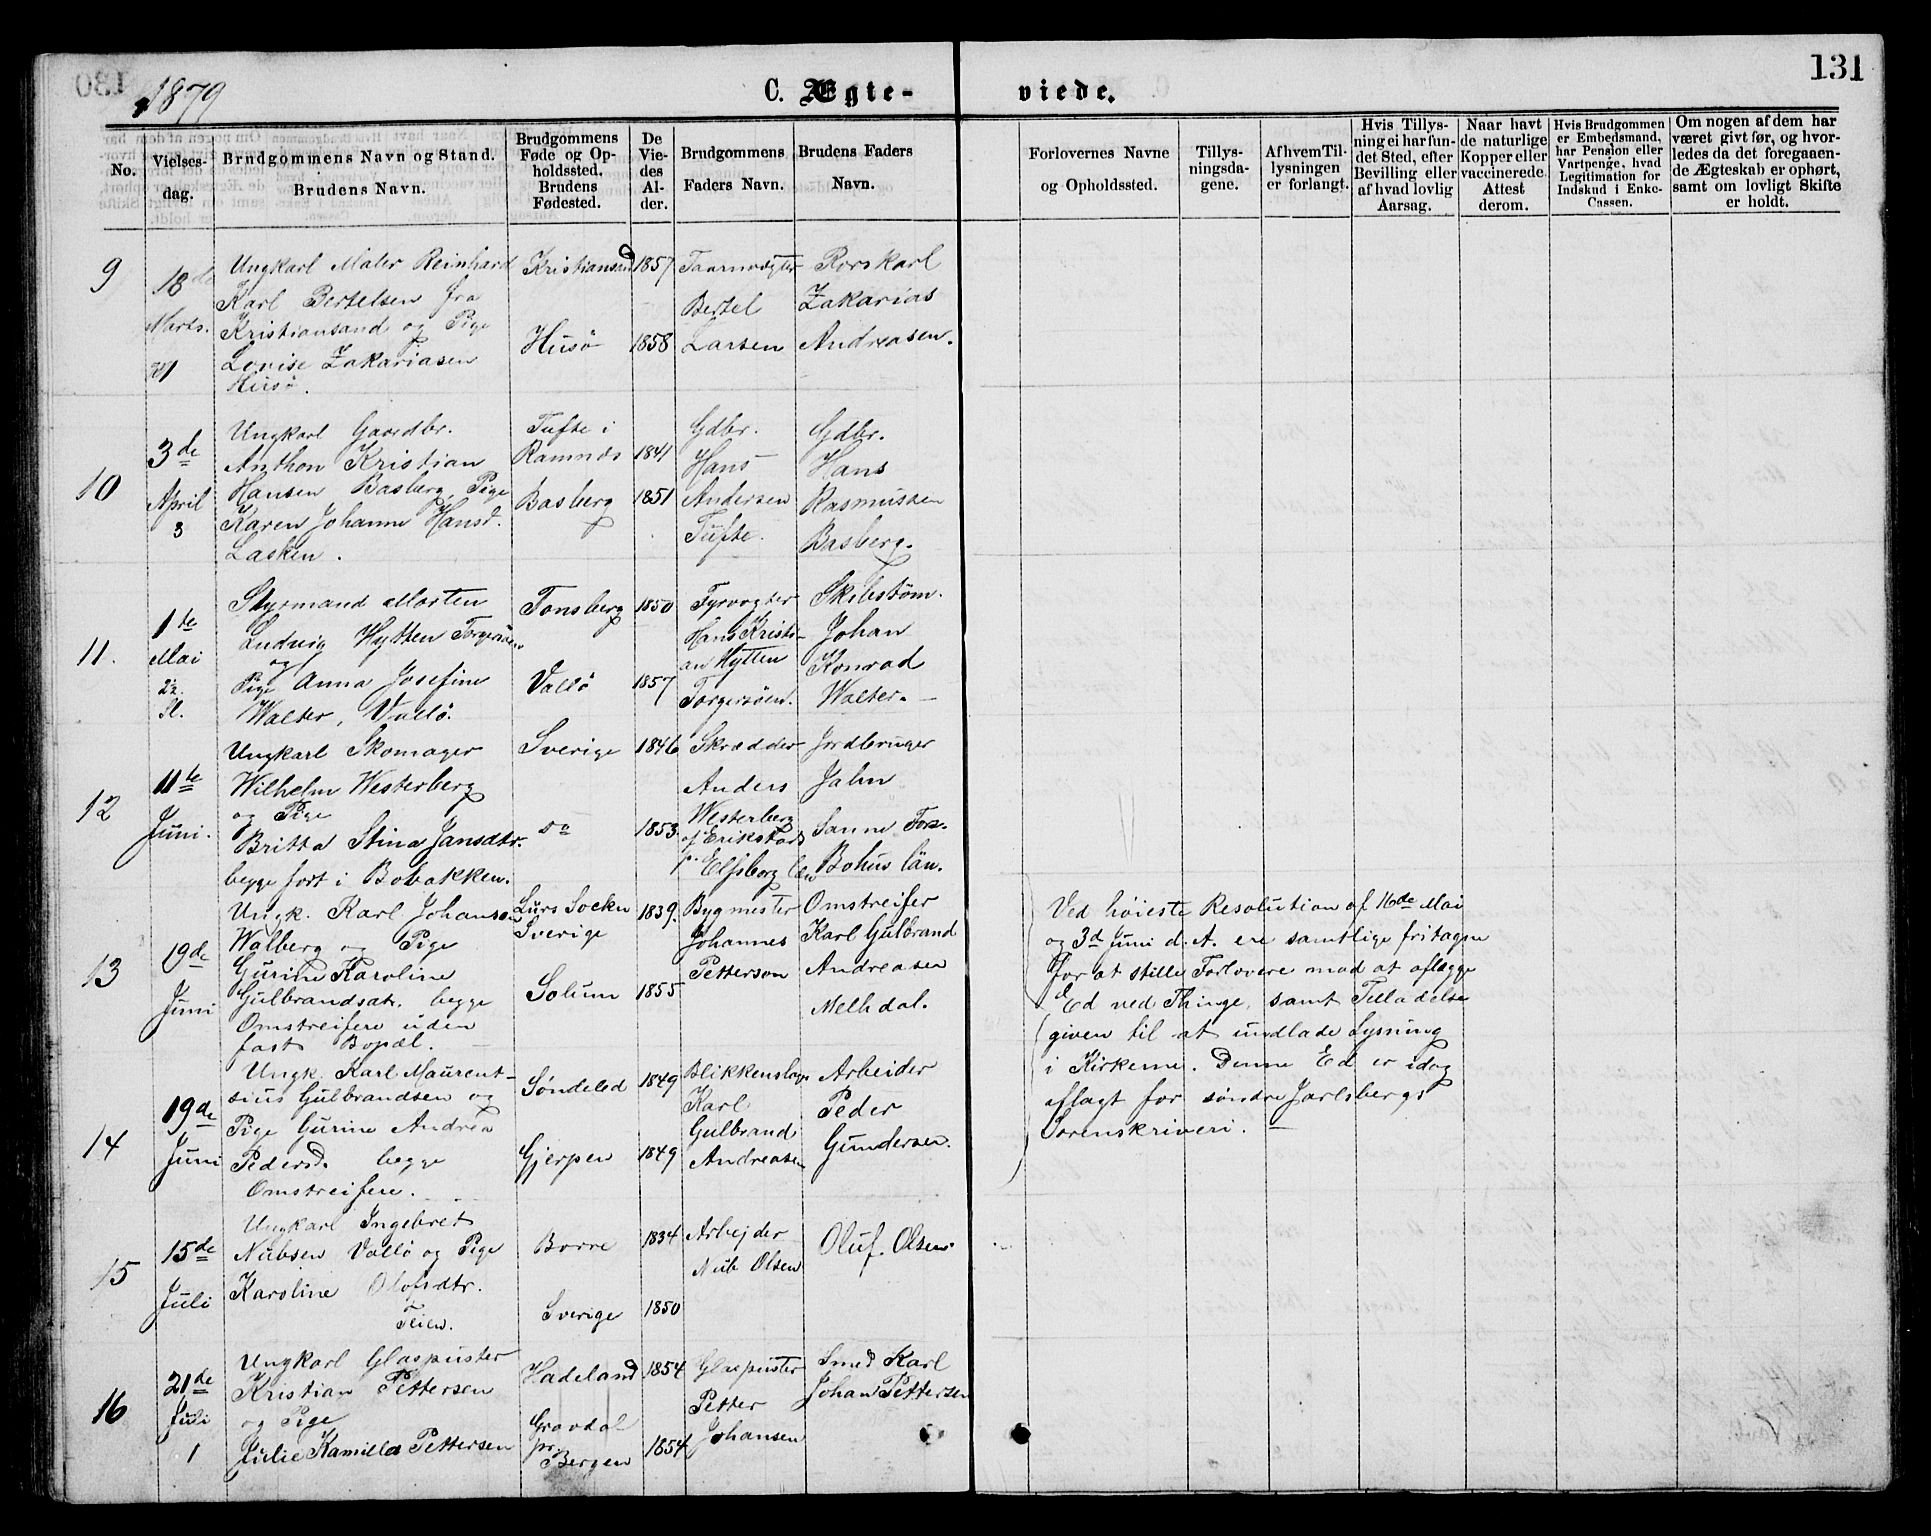 1879
C. Ægte-
viede.
131
No.
Vielses-
dag.
Brudgommens Navn og Stand.
Brudens Navn.
Brudgommens
Føde og Op-
holdssted.
Brudens
Fødested.
De
Vie-
des
Al-
der.
Brudgommens
Faders Navn.
Brudens Faders
Navn.
Forlovernes Navne
og Opholdssted.
Tillys-
ningsda-
gene.
Af hvem Til-
lysningen
er forlangt.
Hvis Tillys-
ning ei har fun-
det Sted, efter
Bevilling eller
af hvad lovlig
Aarsag.
Naar havt
de naturlige
Kopper eller
vaccinerede.
Attest
derom.
Hvis Brudgommen
er Embedsmand,
har Pension eller
Vartpenge, hvad
Legitimation for
Indskud i Enke-
Cassen.
Om nogen af dem har
været givt før, og hvor-
ledes da det foregaaen-
de Ægteskab er ophørt,
samt om lovligt Skifte
er holdt.
9
18de
Marts.
Ungkarl Maler Reinhard
Karl Bertelsen fra
Kristiansand og Pige
Lovise Zakariasen
Husö.
Kristiansand
Husö
1857
1858
Taarnvægter
Bertel
Larsen
Rorskarl
Zakarias
Andreasen.
10
3de
April
3
Ungkarl Gaardbr.
Anthon Kristian
Hansen Basberg, Pige
Karen Johanne Hansd.
Lasken.
Tufte i
Ramnæs
Basberg
1841
1851
Gdbr.
Hans
Andersen
Tufte.
Gdbr.
Hans
Rasmussen
Basberg.
11.
1te
Mai
Styrmand Morten
Ludvig Hytten Torgersöen
og
Pige Anna Josefine
Walter, Vallö.
Tonsberg
Vallö
1850
1857
Fyrvogter
Hans Kristi-
an Hytten
Torgersöen.
Skibstöm.
Johan
Konrad
Walter.
12
11te
Juni.
Ungkarl Skomager
Wilhelm Westerberg
og Pige
Britta Stina Jansdtr.
begge fort i Bobakken.
Sverige
do
1846
1853.
Skrædder
Anders
Westerberg
af Erikstad
Elfsborg län
Jordbruger
Jahn
Sanne Fors.
Bohus län.
13
19de
Juni
Ungk. Karl Johanson
Walberg og Pige
Gurine Karoline
Gulbrandsatr. begge
Omstreifere uden
fast Bopæl.
Lurs Sockn
Sverige
Solum
1839.
1855
Bygmester
Johannes
Petterson
Omstreifer
Karl Gulbrand
Andreasen
Melhdal.
Ved höieste Resolution af 16de Mai
og 3d Juni d. A. ere samtlige fritagne
for at stille Forlovere mod at aflægge
Ed ved Thinge, samt Tilladelse
given til at undlade Lysning
i Kirkerne. Denne Ed er idag
aflagt for söndre Jarlsbergs
Sorenskriveri.
14
19de
Juni
Ungk. Karl Maurent-
sius Gulbrandsen og
Pige Gurine Andrea
Pedersd. begge
Omstreifere.
Söndeled
Gjerpen
1849
1849
Blikkenslager
Karl
Gulbrand
Andreasen
Arbeider
Peder
Gundersen.
15
15de
Juli
Ungkarl Ingebret
Nubsen Vallö og Pige
Karoline Olofsdtr.
Borre
Sverige
1834
1850
Arbejder
Nub Olsen
Oluf. Olsen
16
21de
Juli
1
Ungkarl Glaspuster
Kristian Pettersen
og Pige
Julie Kamilla Pettersen
Hadeland
Gravdal
pr.
Bergen
1854
1854
Glaspuster
Petter
Johansen
Smed Karl
Johan Pettersen